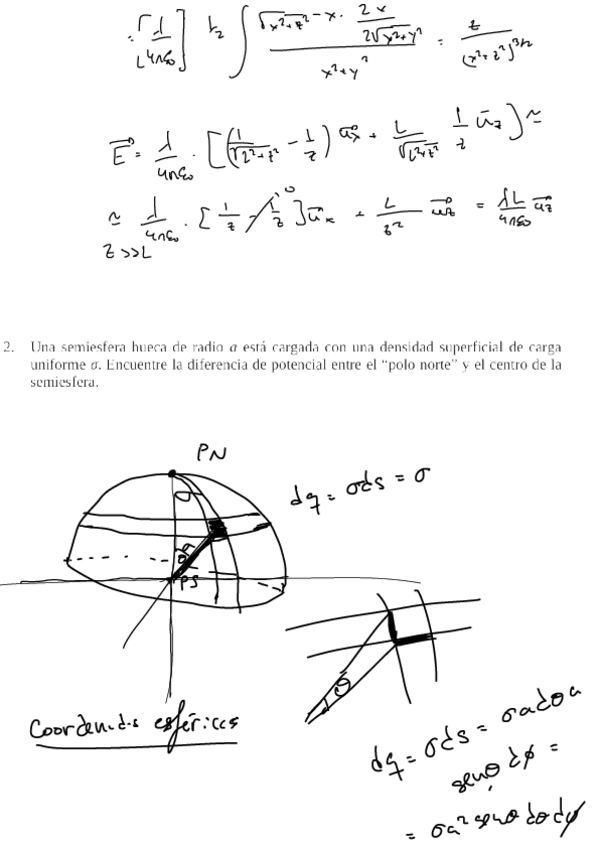 = [λ/4πε₀] ½ ∫ (√x²+z² - x · 2x/2√x²+y²)/(x²+y²) = z/(x²+z²)^3/2
E = λ/4πε₀ · [(1/√L²+z² - 1/z) ux + L/√L²+z² 1/z uz] ≃
≃ λ/4πε₀ · [1/z - 1/z] ux + L/z² uz = λL/4πε₀ uz
z >> L
2. Una semiesfera hueca de radio a está cargada con una densidad superficial de carga
uniforme σ. Encuentre la diferencia de potencial entre el “polo norte” y el centro de la
semiesfera.
PN
dq = σds = σ
θ
PS
θ
Coordenadas esféricas
dq = σds = σadθa
senθ dφ =
= σa² senθ dθ dφ